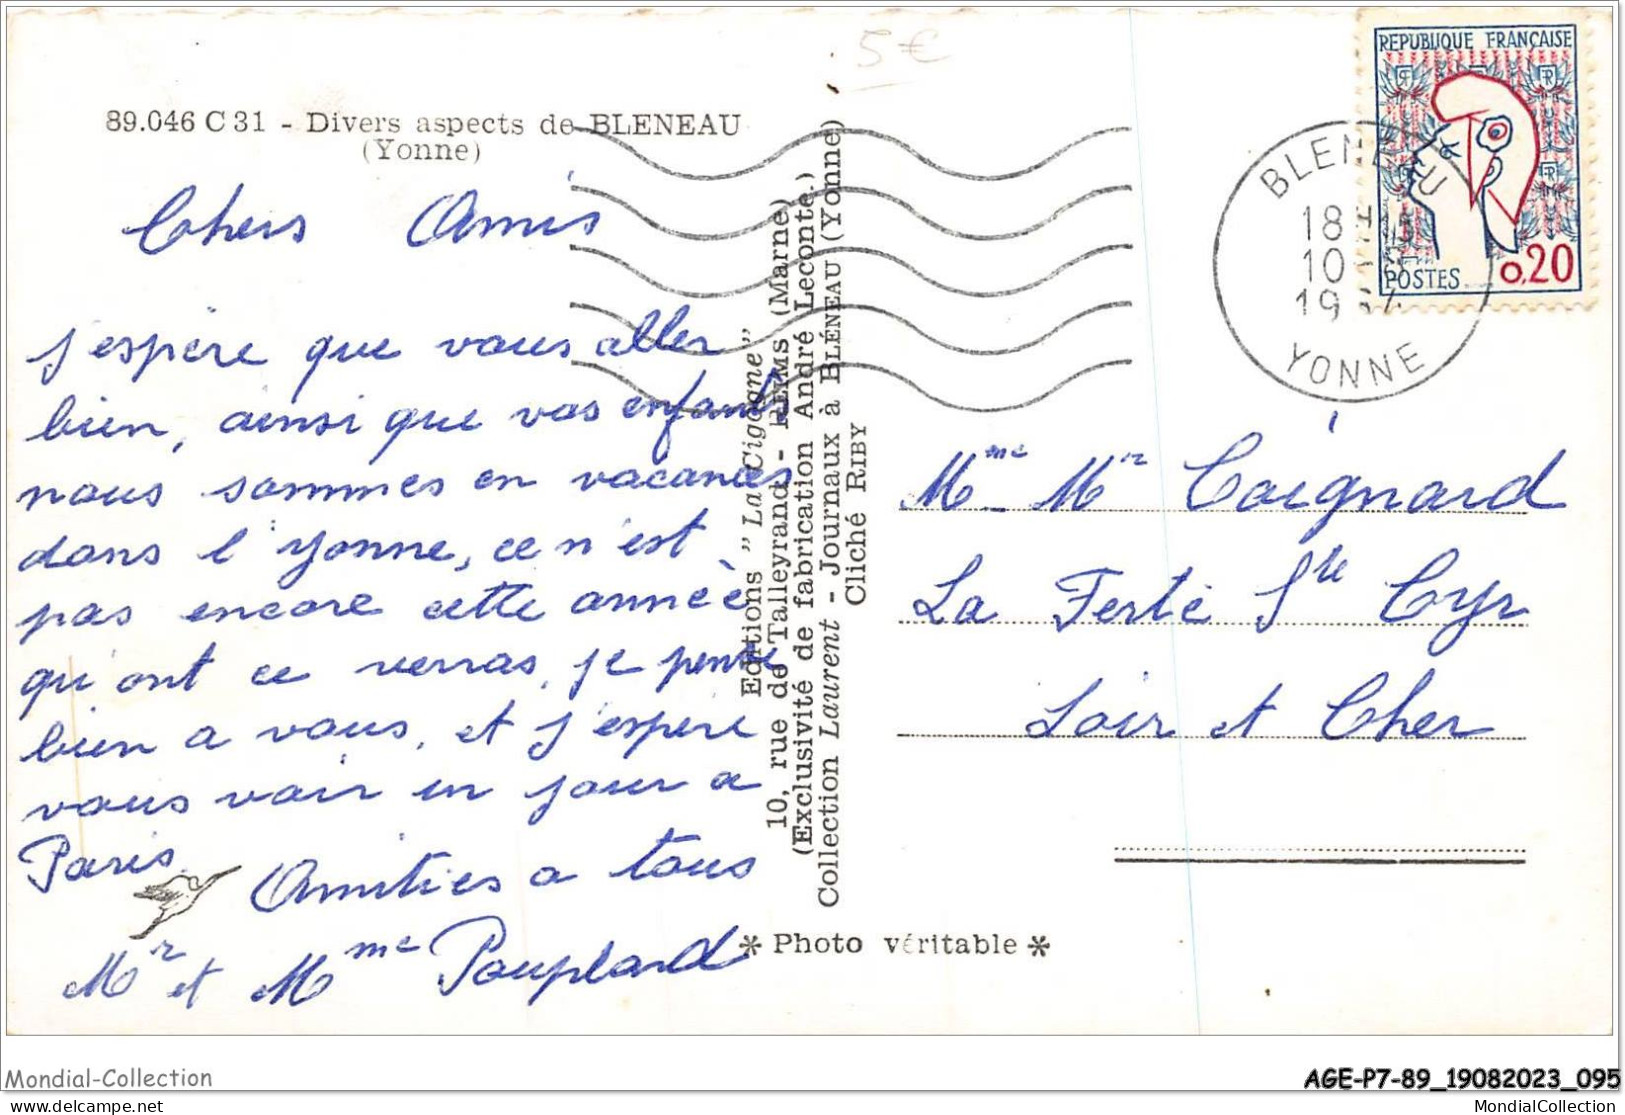 5€
89.046 C 31 - Divers aspects de BLENEAU
(Yonne)
Chers Amis
j'espère que vous aller
bien, ainsi que vos enfants
nous sommes en vacances
dans l'yonne, ce n'est
pas encore cette année
qu'ont ce verras, je pense
bien a vous, et j'espere
vous voir un jour a
Paris.
Amities a tous
Mr et Mme Pouplard
Editions "La Cigogne"
10, rue de Talleyrand - REIMS (Marne)
(Exclusivité de fabrication André Leconte.)
Collection Laurent - Journaux à BLÉNEAU (Yonne)
Cliché RIBY
* Photo véritable *
REPUBLIQUE FRANÇAISE
RF
POSTES 0,20
BLENEAU
18H45
10
19
YONNE
Mme Mr Coignard
La Ferté Ste Cyr
Loir et Cher
Mondial-Collection
AGE-P7-89_19082023_095
delcampe.net
MondialCollection